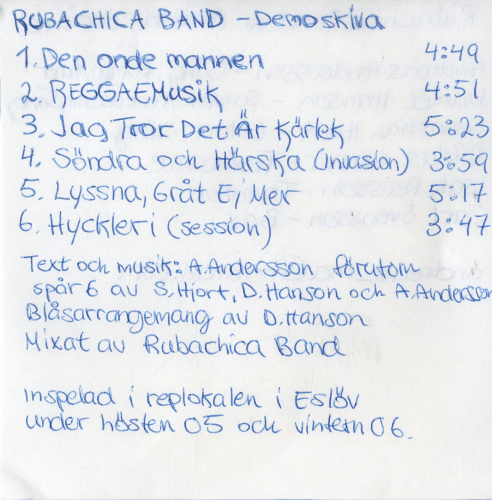 RUBACHICA BAND - Demoskiva
1. Den onde mannen 4:49
2. REGGAEMusik 4:51
3. Jag Tror Det Är Kärlek 5:23
4. Söndra och Härska (invasion) 3:59
5. Lyssna, Gråt Ej Mer 5:17
6. Hyckleri (session) 3:47
Text och musik: A.Andersson förutom
spår 6 av S.Hjort, D.Hanson och A.Andersson
Blåsarrangemang av D.Hanson
Mixat av Rubachica Band
Inspelad i replokalen i Eslöv
under hösten 05 och vintern 06.